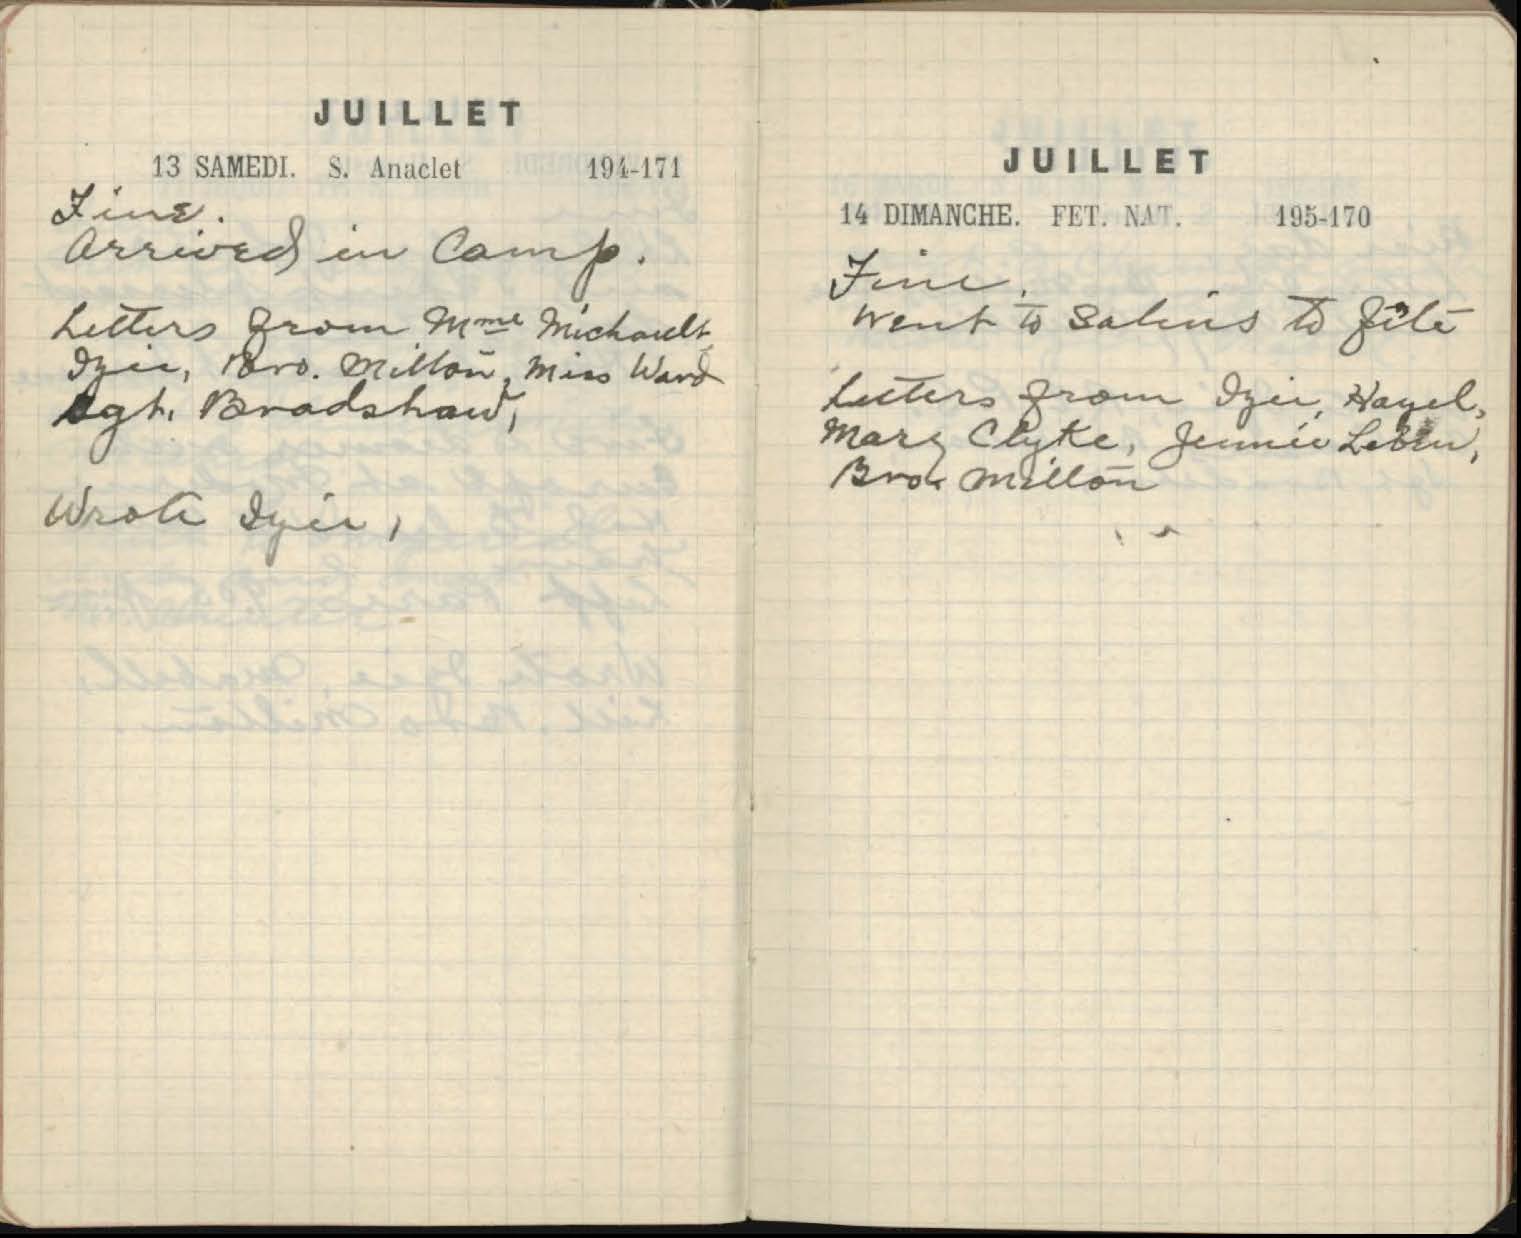 JUILLET
13 SAMEDI. S. Anaclet 194-171
Fine.
Arrived in Camp.
Letters from Mme Michault,
Izie, Bro. Milton, Miss Ward
Sgt. Bradshaw,
Wrote Izie,
JUILLET
14 DIMANCHE. FET. NAT. 195-170
Fine.
Went to Salins to fête
Letters from Izie, Hazel,
Mary Clyke, Jennie
Bro. Milton